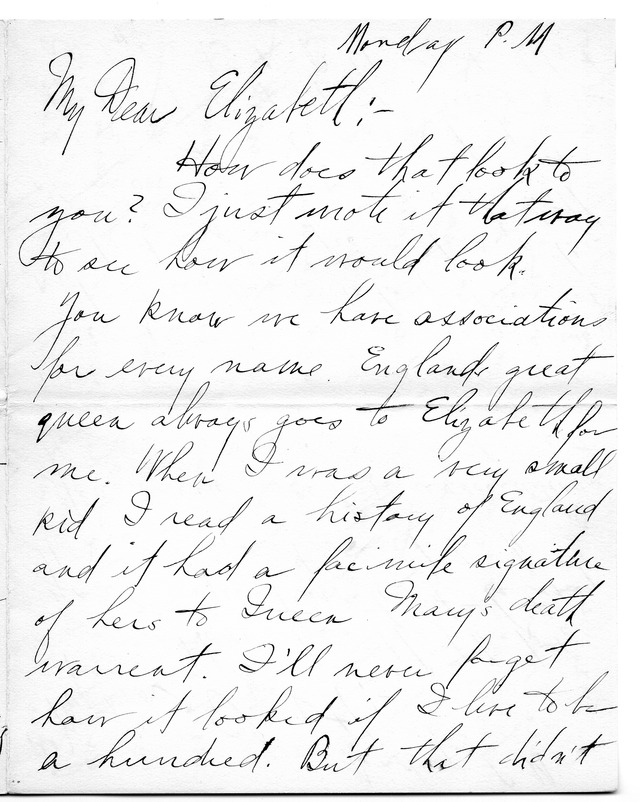 Monday P.M
My Dear Elizabeth;-
How does that look to
you? I just wrote it that way
to see how it would look.
You know we have associations
for every name. England's great
queen always goes to Elizabeth for
me. When I was a very small
kid I read a history of England
and it had a facimile signature
of hers to Queen Mary's death
warrent. I'll never forget
how it looked if I live to be
a hundred. But that didn't